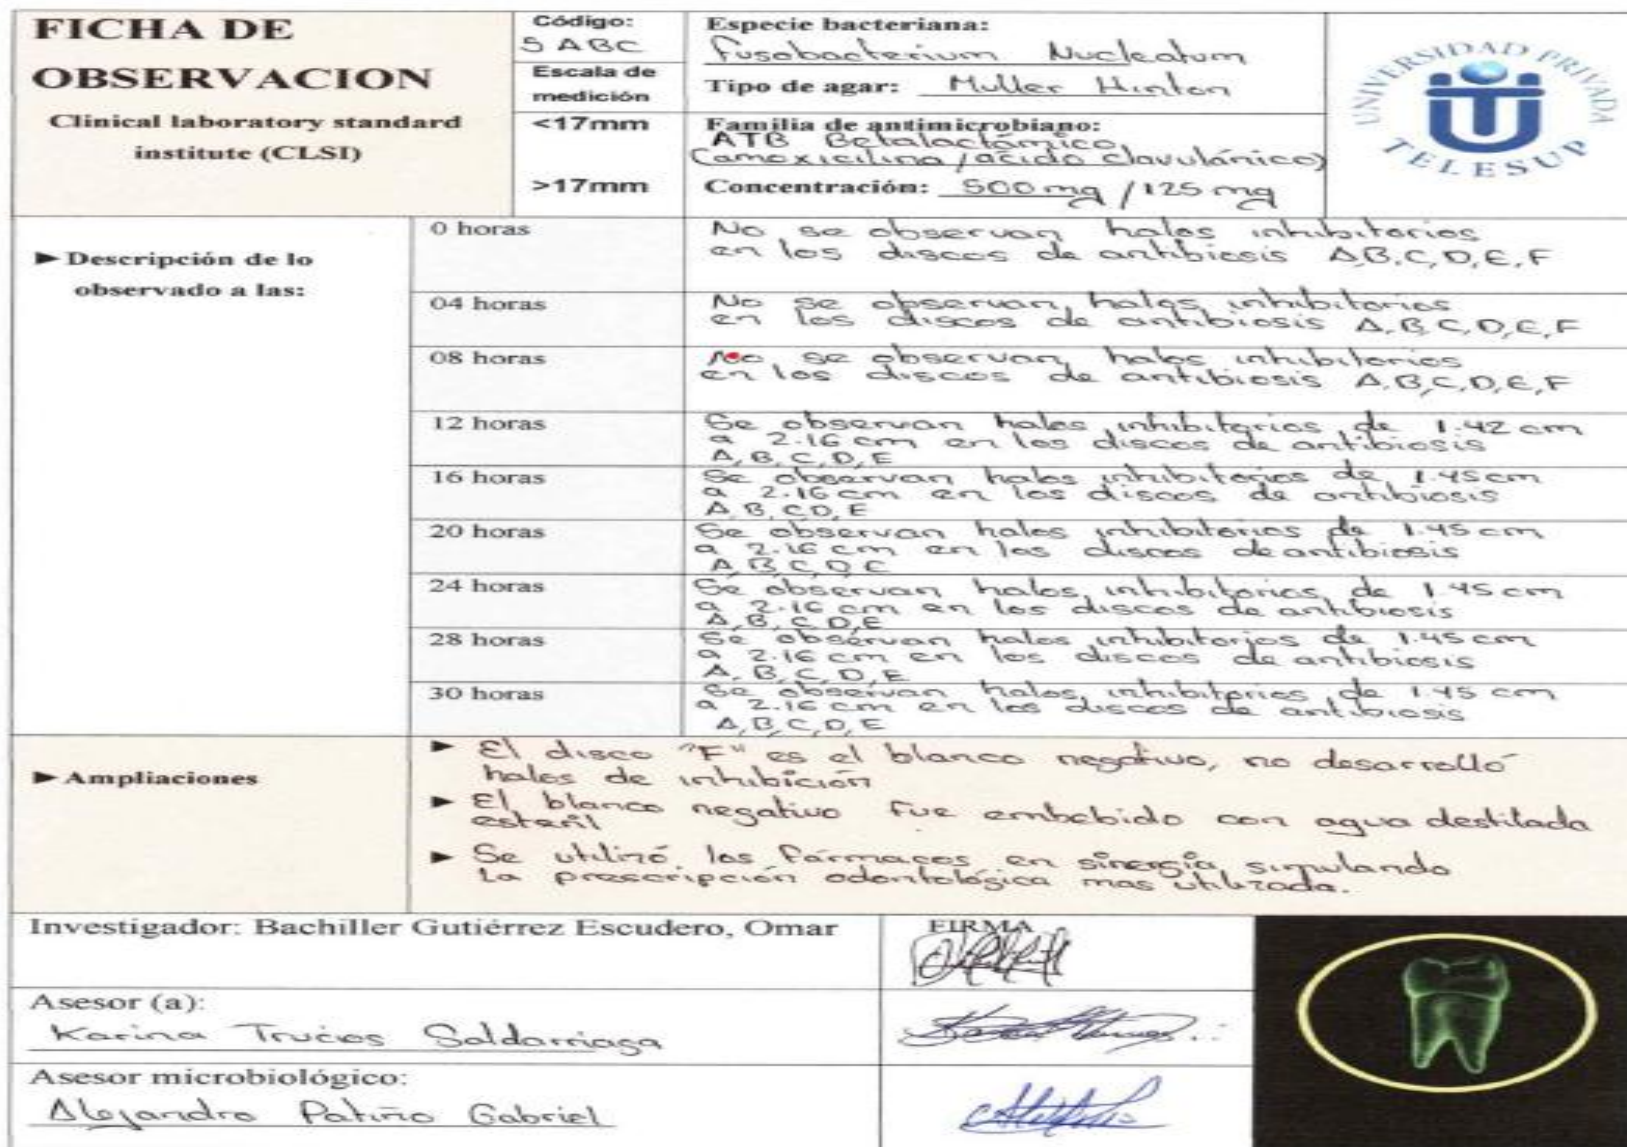 FICHA DE
OBSERVACION
Clinical laboratory standard
institute (CLSI)
Código:
5 ABC
Escala de
medición
<17mm
>17mm
Especie bacteriana:
Fusobacterium Nucleatum
Tipo de agar: Muller Hinton
Familia de antimicrobiano:
ATB Betalactámico
(amoxicilina/ácido clavulánico)
Concentración: 500 mg / 125 mg
UNIVERSIDAD PRIVADA
TELESUP
►Descripción de lo
observado a las:
0 horas
No se observan halos inhibitorios
en los discos de antibiosis A,B,C,D,E,F
04 horas
No se observan halos inhibitorios
en los discos de antibiosis A,B,C,D,E,F
08 horas
No se observan halos inhibitorios
en los discos de antibiosis A,B,C,D,E,F
12 horas
Se observan halos inhibitorios de 1.42 cm
a 2.16 cm en los discos de antibiosis
A, B, C, D, E
16 horas
Se observan halos inhibitorios de 1.45cm
a 2.16 cm en los discos de antibiosis
A, B, C D, E
20 horas
Se observan halos inhibitorios de 1.45 cm
a 2.16 cm en los discos de antibiosis
A B, C, D, E
24 horas
Se observan halos inhibitorios de 1.45 cm
a 2.16 cm en los discos de antibiosis
A, B, C, D, E
28 horas
Se observan halos inhibitorios de 1.45 cm
a 2.16 cm en los discos de antibiosis
A, B, C, D, E
30 horas
Se observan halos inhibitorios de 1.45 cm
a 2.16 cm en los discos de antibiosis
A, B, C, D, E
►Ampliaciones
► El disco "F" es el blanco negativo, no desarrolló
halos de inhibición
► El blanco negativo fue embebido con agua destilada
esteril
► Se utilizó los fármacos en sinergía simulando
la prescripción odontológica mas utilizada.
Investigador: Bachiller Gutiérrez Escudero, Omar
FIRMA
Asesor (a):
Karina Trucios Saldarriaga
Asesor microbiológico:
Alejandro Patiño Gabriel